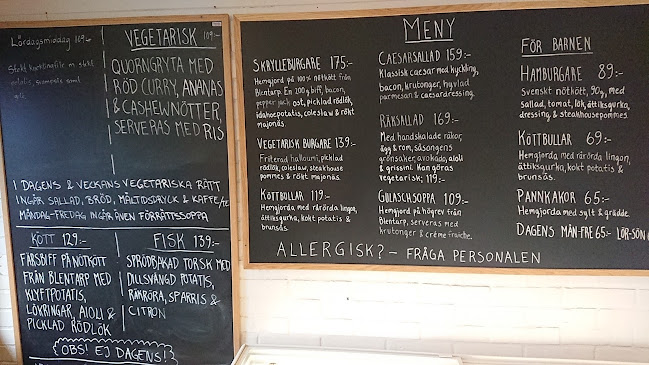 Lördagsmiddag 109:-
VEGETARISK 109:-
QUORNGRYTA MED
RÖD CURRY, ANANAS
& CASHEWNÖTTER,
SERVERAS MED RIS
I DAGENS & VECKANS VEGETARISKA RÄTT
INGÅR SALLAD, BRÖD, MÅLTIDSDRYCK & KAFFE/TE
MÅNDAG-FREDAG INGÅR ÄVEN FÖRRÄTTSSOPPA
KÖTT 129:-
FÄRSBIFF PÅ NÖTKÖTT
FRÅN BLENTARP MED
KLYFTPOTATIS,
LÖKRINGAR, AIOLI &
PICKLAD RÖDLÖK
FISK 139:-
SPRÖDBAKAD TORSK MED
DILLSVÄNGD POTATIS,
RÄKRÖRA, SPARRIS &
CITRON
OBS! EJ DAGENS!
MENY
SKRYLLEBURGARE 175:-
Hemgjord på 100% nötkött från
Blentarp. En 200g biff, bacon,
pepper jack ost, picklad rödlök,
idahoepotatis, coleslaw & rökt
majonäs.
VEGETARISK BURGARE 139:-
Friterad halloumi, picklad
rödlök, coleslaw, steakhouse
pommes & rökt majonäs.
KÖTTBULLAR 119:-
Hemgjorda med rårörda lingon,
ättiksgurka, kokt potatis &
brunsås.
CAESARSALLAD 159:-
Klassisk caesar med kyckling,
bacon, krutonger, hyvlad
parmesan & caesardressing.
RÄKSALLAD 169:-
Med handskalade räkor,
ägg & rom, säsongens
grönsaker, avokado, aioli
& grissini. Kan göras
vegetarisk: 119:-
GULASCHSOPPA 109:-
Hemgjord på högrev från
Blentarp, serveras med
krutonger & créme fraiche.
FÖR BARNEN
HAMBURGARE 89:-
Svenskt nötkött, 90g, med
sallad, tomat, lök, ättiksgurka,
dressing & steakhousepommes.
KÖTTBULLAR 69:-
Hemgjorda med rårörda lingon,
ättiksgurka, kokt potatis &
brunsås.
PANNKAKOR 65:-
Hemgjorda med sylt & grädde.
DAGENS MÅN-FRE 65:- LÖR-SÖN
ALLERGISK? - FRÅGA PERSONALEN